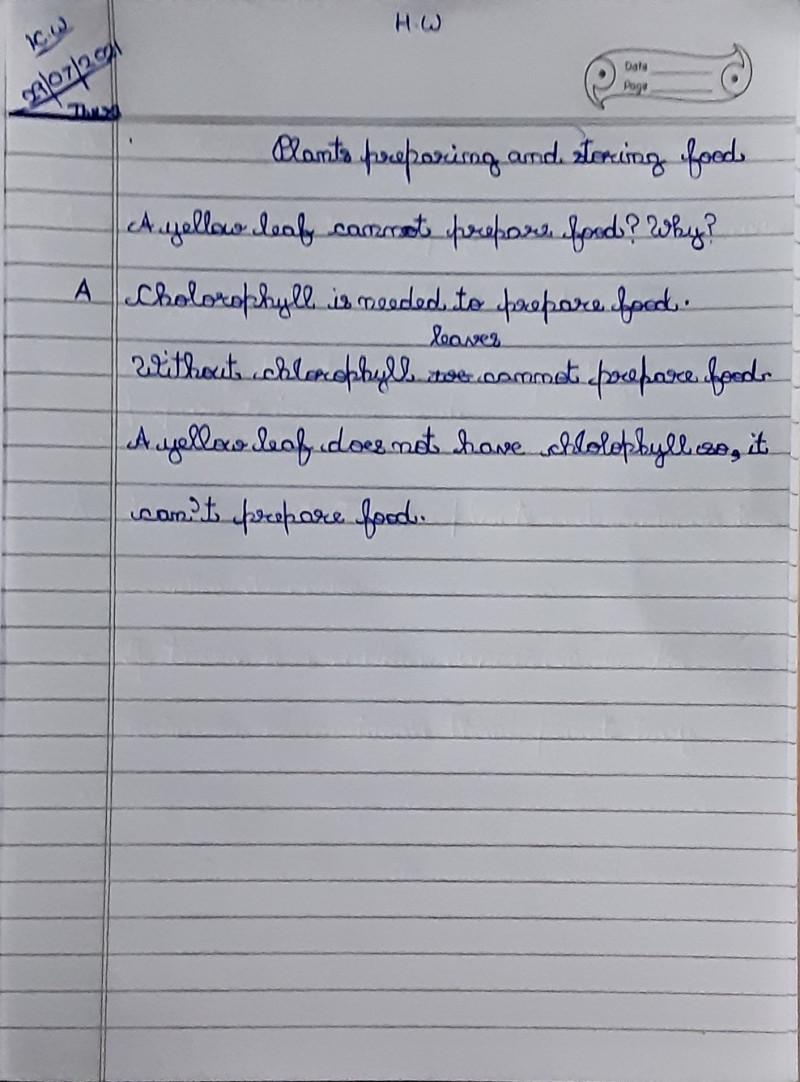 H.W
K.W
29/07/2021
Thurs
Date
Page
Plants preparing and storing food
A yellow leaf cannot prepare food? Why?
A Cholorophyll is needed to prepare food.
leaves
Without chlorophyll cannot prepare food.
A yellow leaf does not have chlolophyll so, it
can't prepare food.